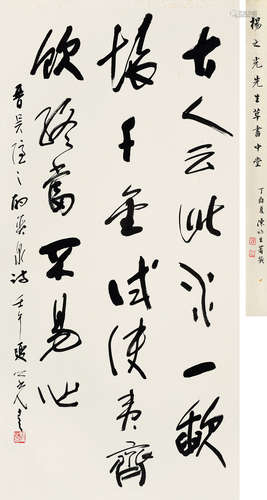 古人云此水一歃
懷千金試使夷齊
飲終當不易心
晋吴隐之酌贪泉诗 壬午
楊之光先生草書中堂
丁酉夏陳